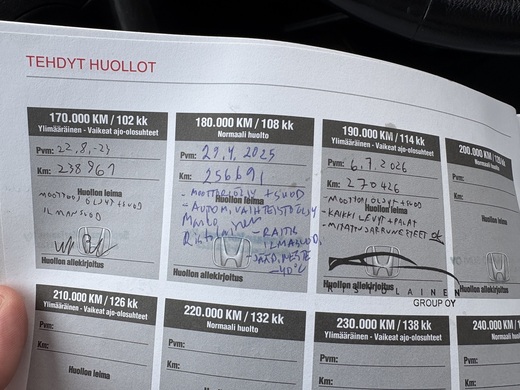 TEHDYT HUOLLOT
170.000 KM / 102 kk
Ylimääräinen - Vaikeat ajo-olosuhteet
Pvm: 22.8.-23
Km: 238961
Huollon leima
MOOTTORIÖLJY + SUOD
ILMANSUOD
Huollon allekirjoitus
180.000 KM / 108 kk
Normaali huolto
Pvm: 29.4.2025
Km: 256691
Huollon leima
- MOOTTORIÖLJY + SUOD
- AUTOM. VAIHTEISTOÖLJY
- RAITIS
ILMASUOD.
- JÄÄD. NESTE
-40°C
Huollon allekirjoitus
190.000 KM / 114 kk
Ylimääräinen - Vaikeat ajo-olosuhteet
Pvm: 6.7.2026
Km: 270426
Huollon leima
- MOOTTORIÖLJYT + SUOD
- KAIKKI LEVYT + PALAT
Huollon allekirjoitus
GROUP OY
200.000
Normaali
Pvm:
Km:
Huollon
210.000 KM / 126 kk
Ylimääräinen - Vaikeat ajo-olosuhteet
Pvm:
Km:
Huollon leima
220.000 KM / 132 kk
Normaali huolto
Pvm:
Km:
230.000 KM / 138 kk
Ylimääräinen - Vaikeat ajo-olosuhteet
Pvm:
Km:
240.000
Pvm:
Km: